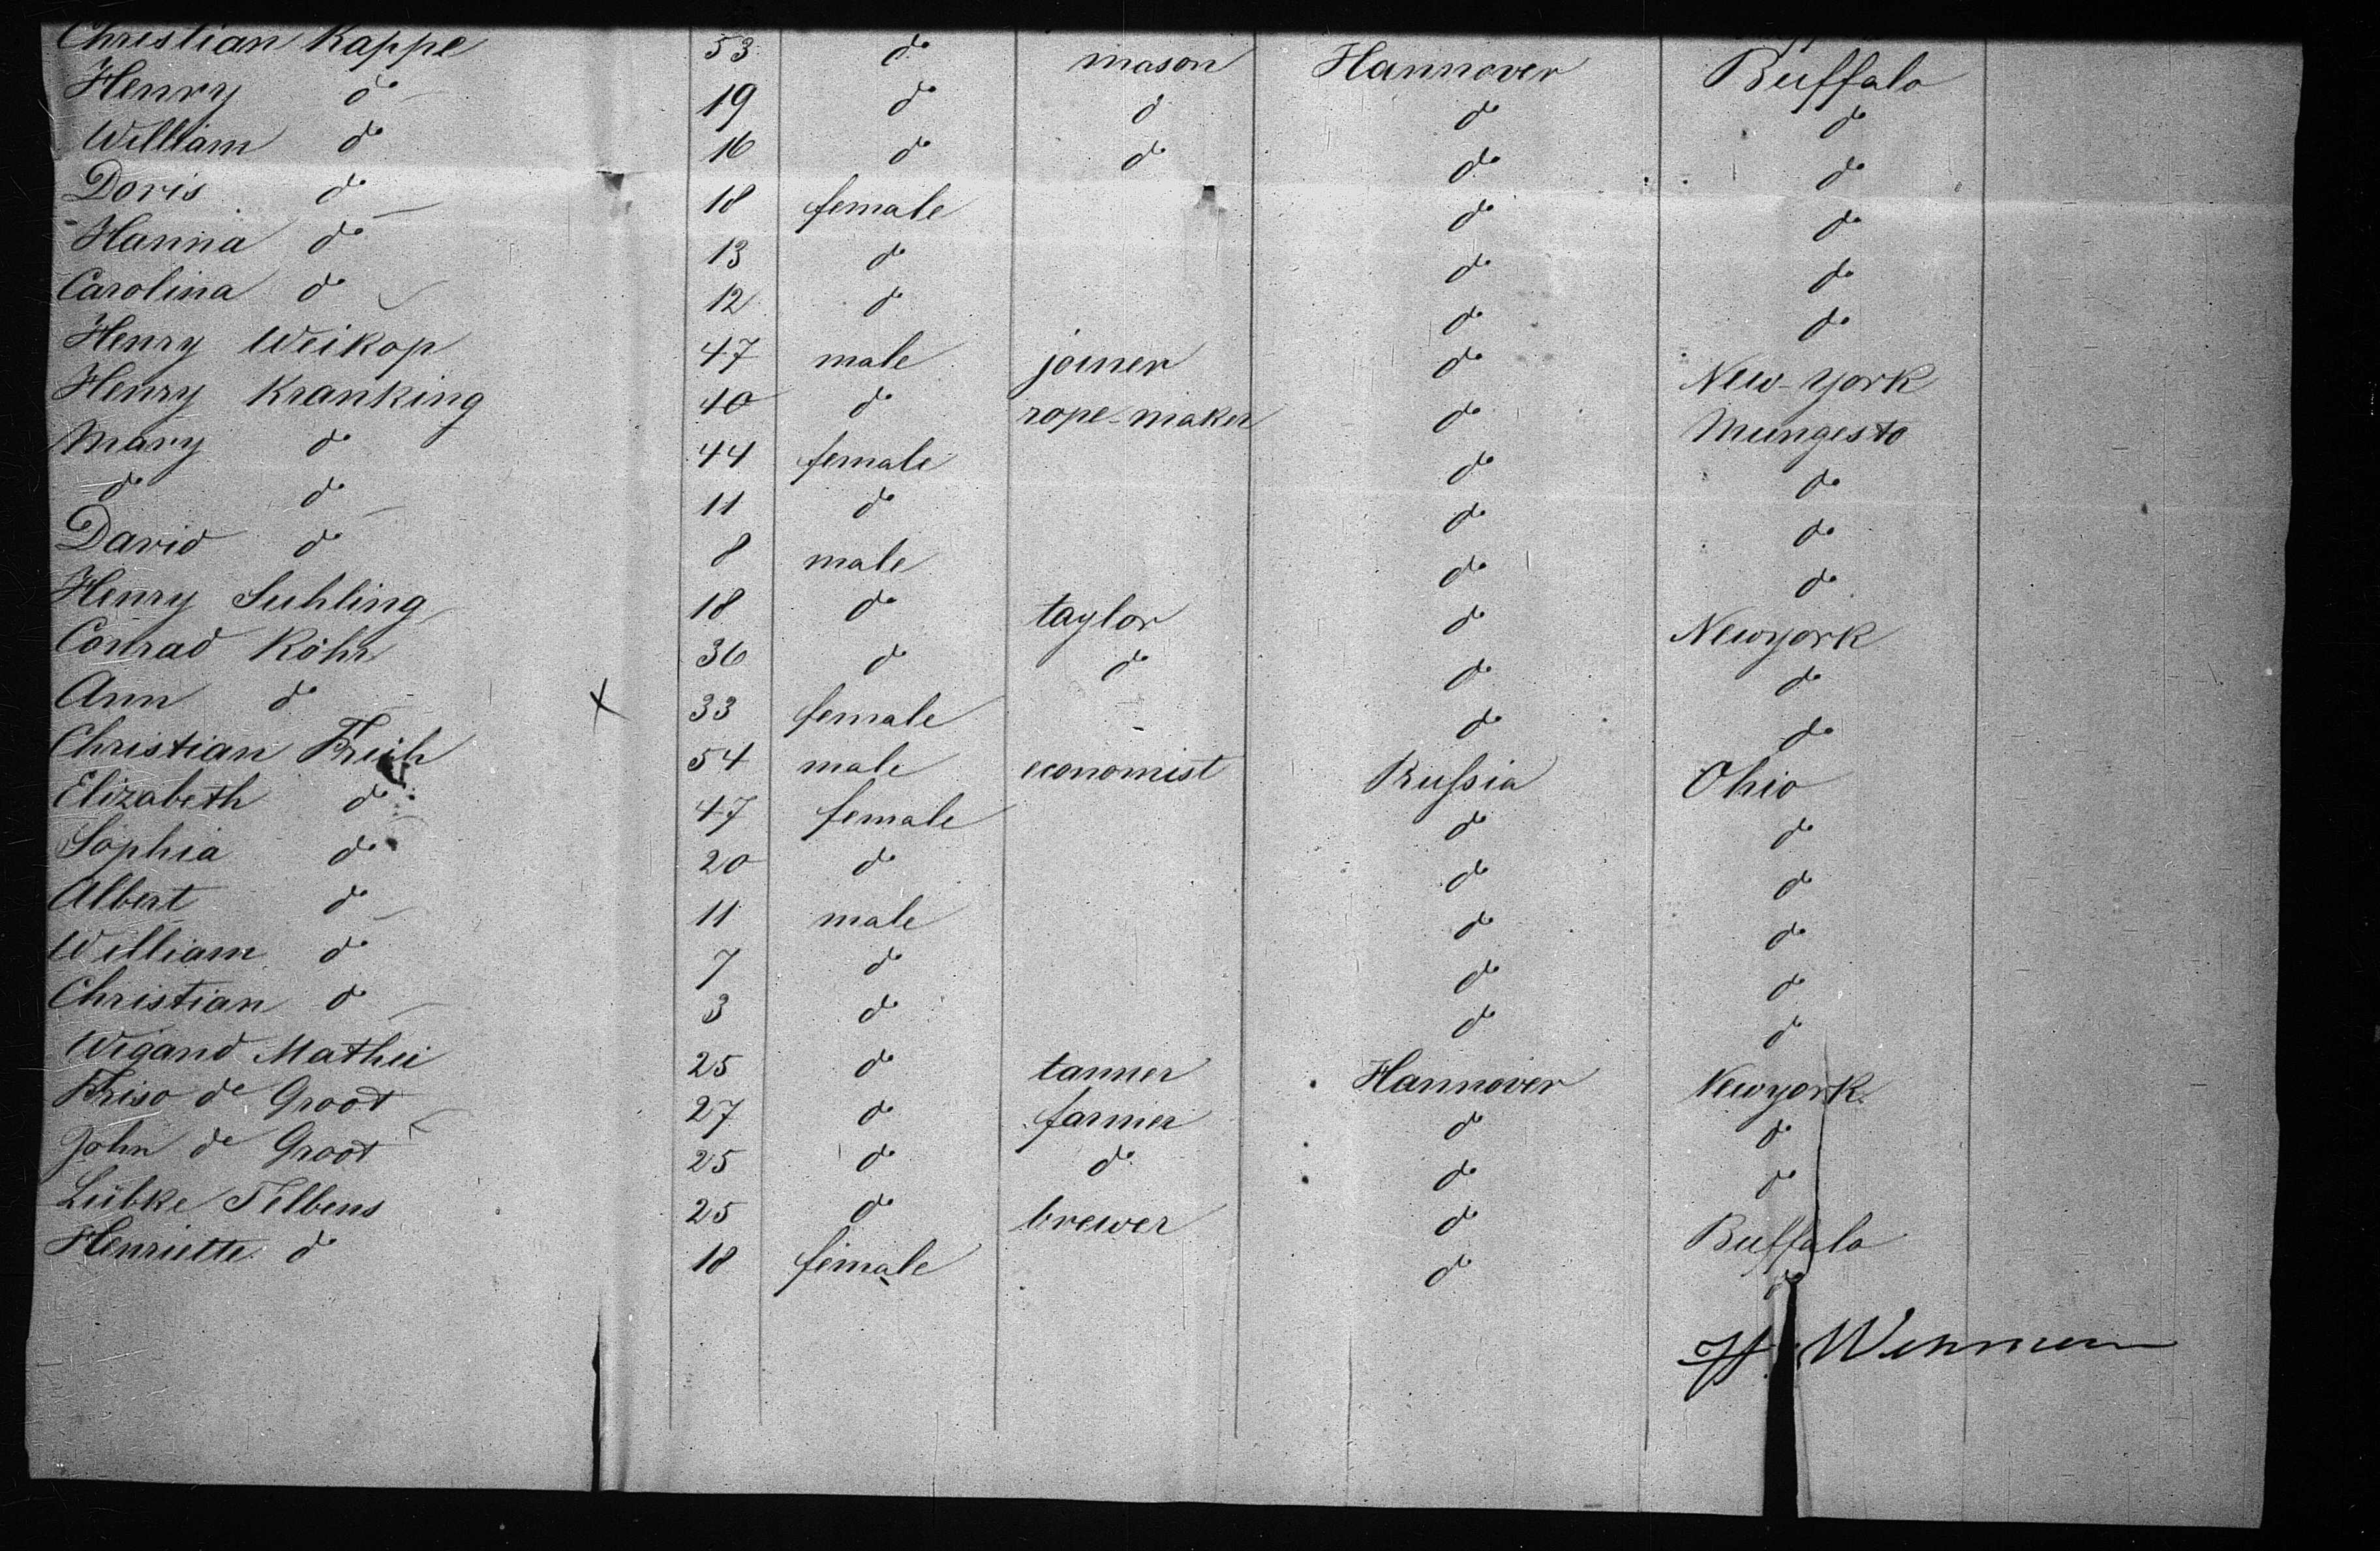 Christian Kappe 53 do mason Hannover Buffalo
Henry do 19 do d do do
William do 16 do do do do
Doris do 18 female do do
Hanna do 13 do do do
Carolina do 12 do do do
Henry Weikop 47 male joiner do New-York
Henry Kranking 40 do rope-maker do Mungesto
Mary do 44 female do do
do do 11 do do do
David do 8 male do do
Henry Suhling 18 do taylor do Newyork
Conrad Röhr 36 do do do do
Ann do X 33 female do do
Christian 54 male economist Ohio
Elizabeth do 47 female do do
Sophia do 20 do do do
Albert do 11 male do do
William do 7 do do do
Christian do 3 do do do
Wigand Mathei 25 do tanner Hannover Newyork
Friso de Groot 27 do farmer do do
John de Groot 25 do do do do
Lübke Telbens 25 do brewer do Buffalo
Henriette do 18 female do do
H.